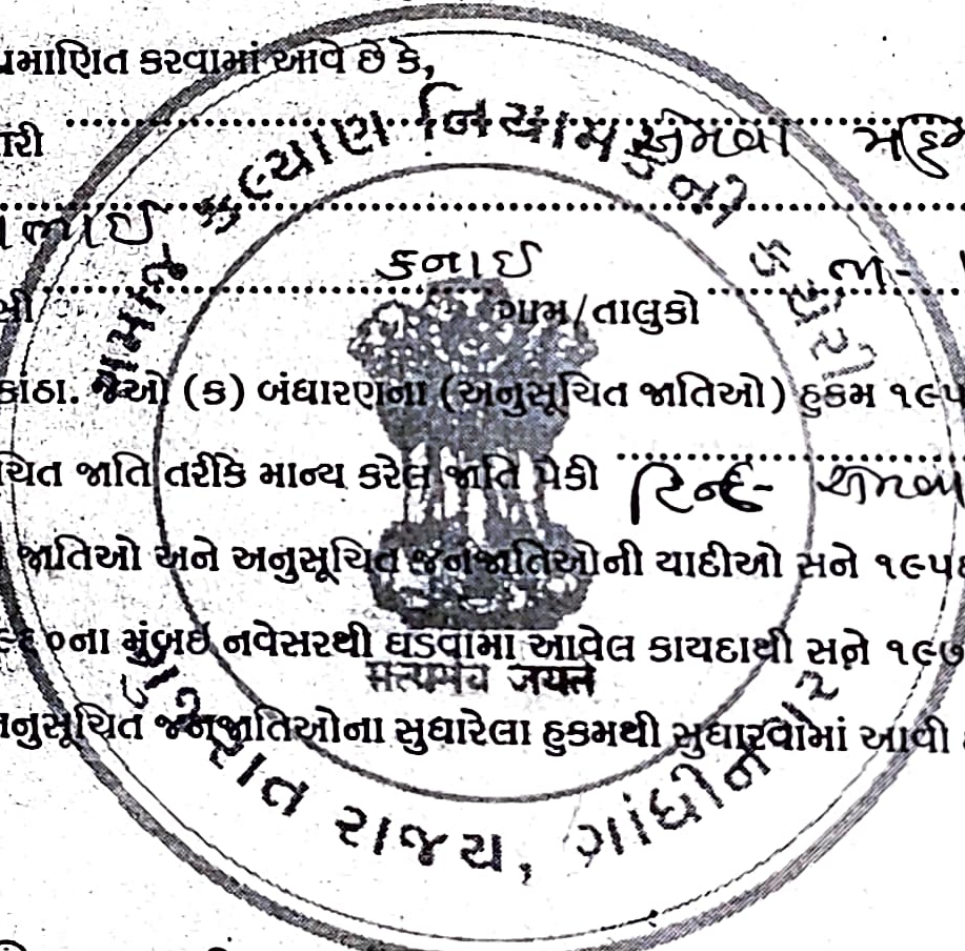 પ્રમાણિત કરવામાં આવે છે કે,
તારી
કનાઈ
ગામ/તાલુકો
કાંઠા. જેઓ (ક) બંધારણના (અનુસૂચિત જાતિઓ) હુકમ ૧૯૫
ચિત જાતિ તરીકે માન્ય કરેલ જાતિ પૈકી હિન્દુ-
જાતિઓ અને અનુસૂચિત જનજાતિઓની યાદીઓ સને ૧૯૫
૯૬૦ના મુંબઈ નવેસરથી ઘડવામાં આવેલ કાયદાથી સને ૧૯૭
અનુસૂચિત જનજાતિઓના સુધારેલા હુકમથી સુધારવામાં આવી
સમાજ કલ્યાણ નિયામકની કચેરી
ગુજરાત રાજ્ય, ગાંધીનગર
सत्यमेव जयते